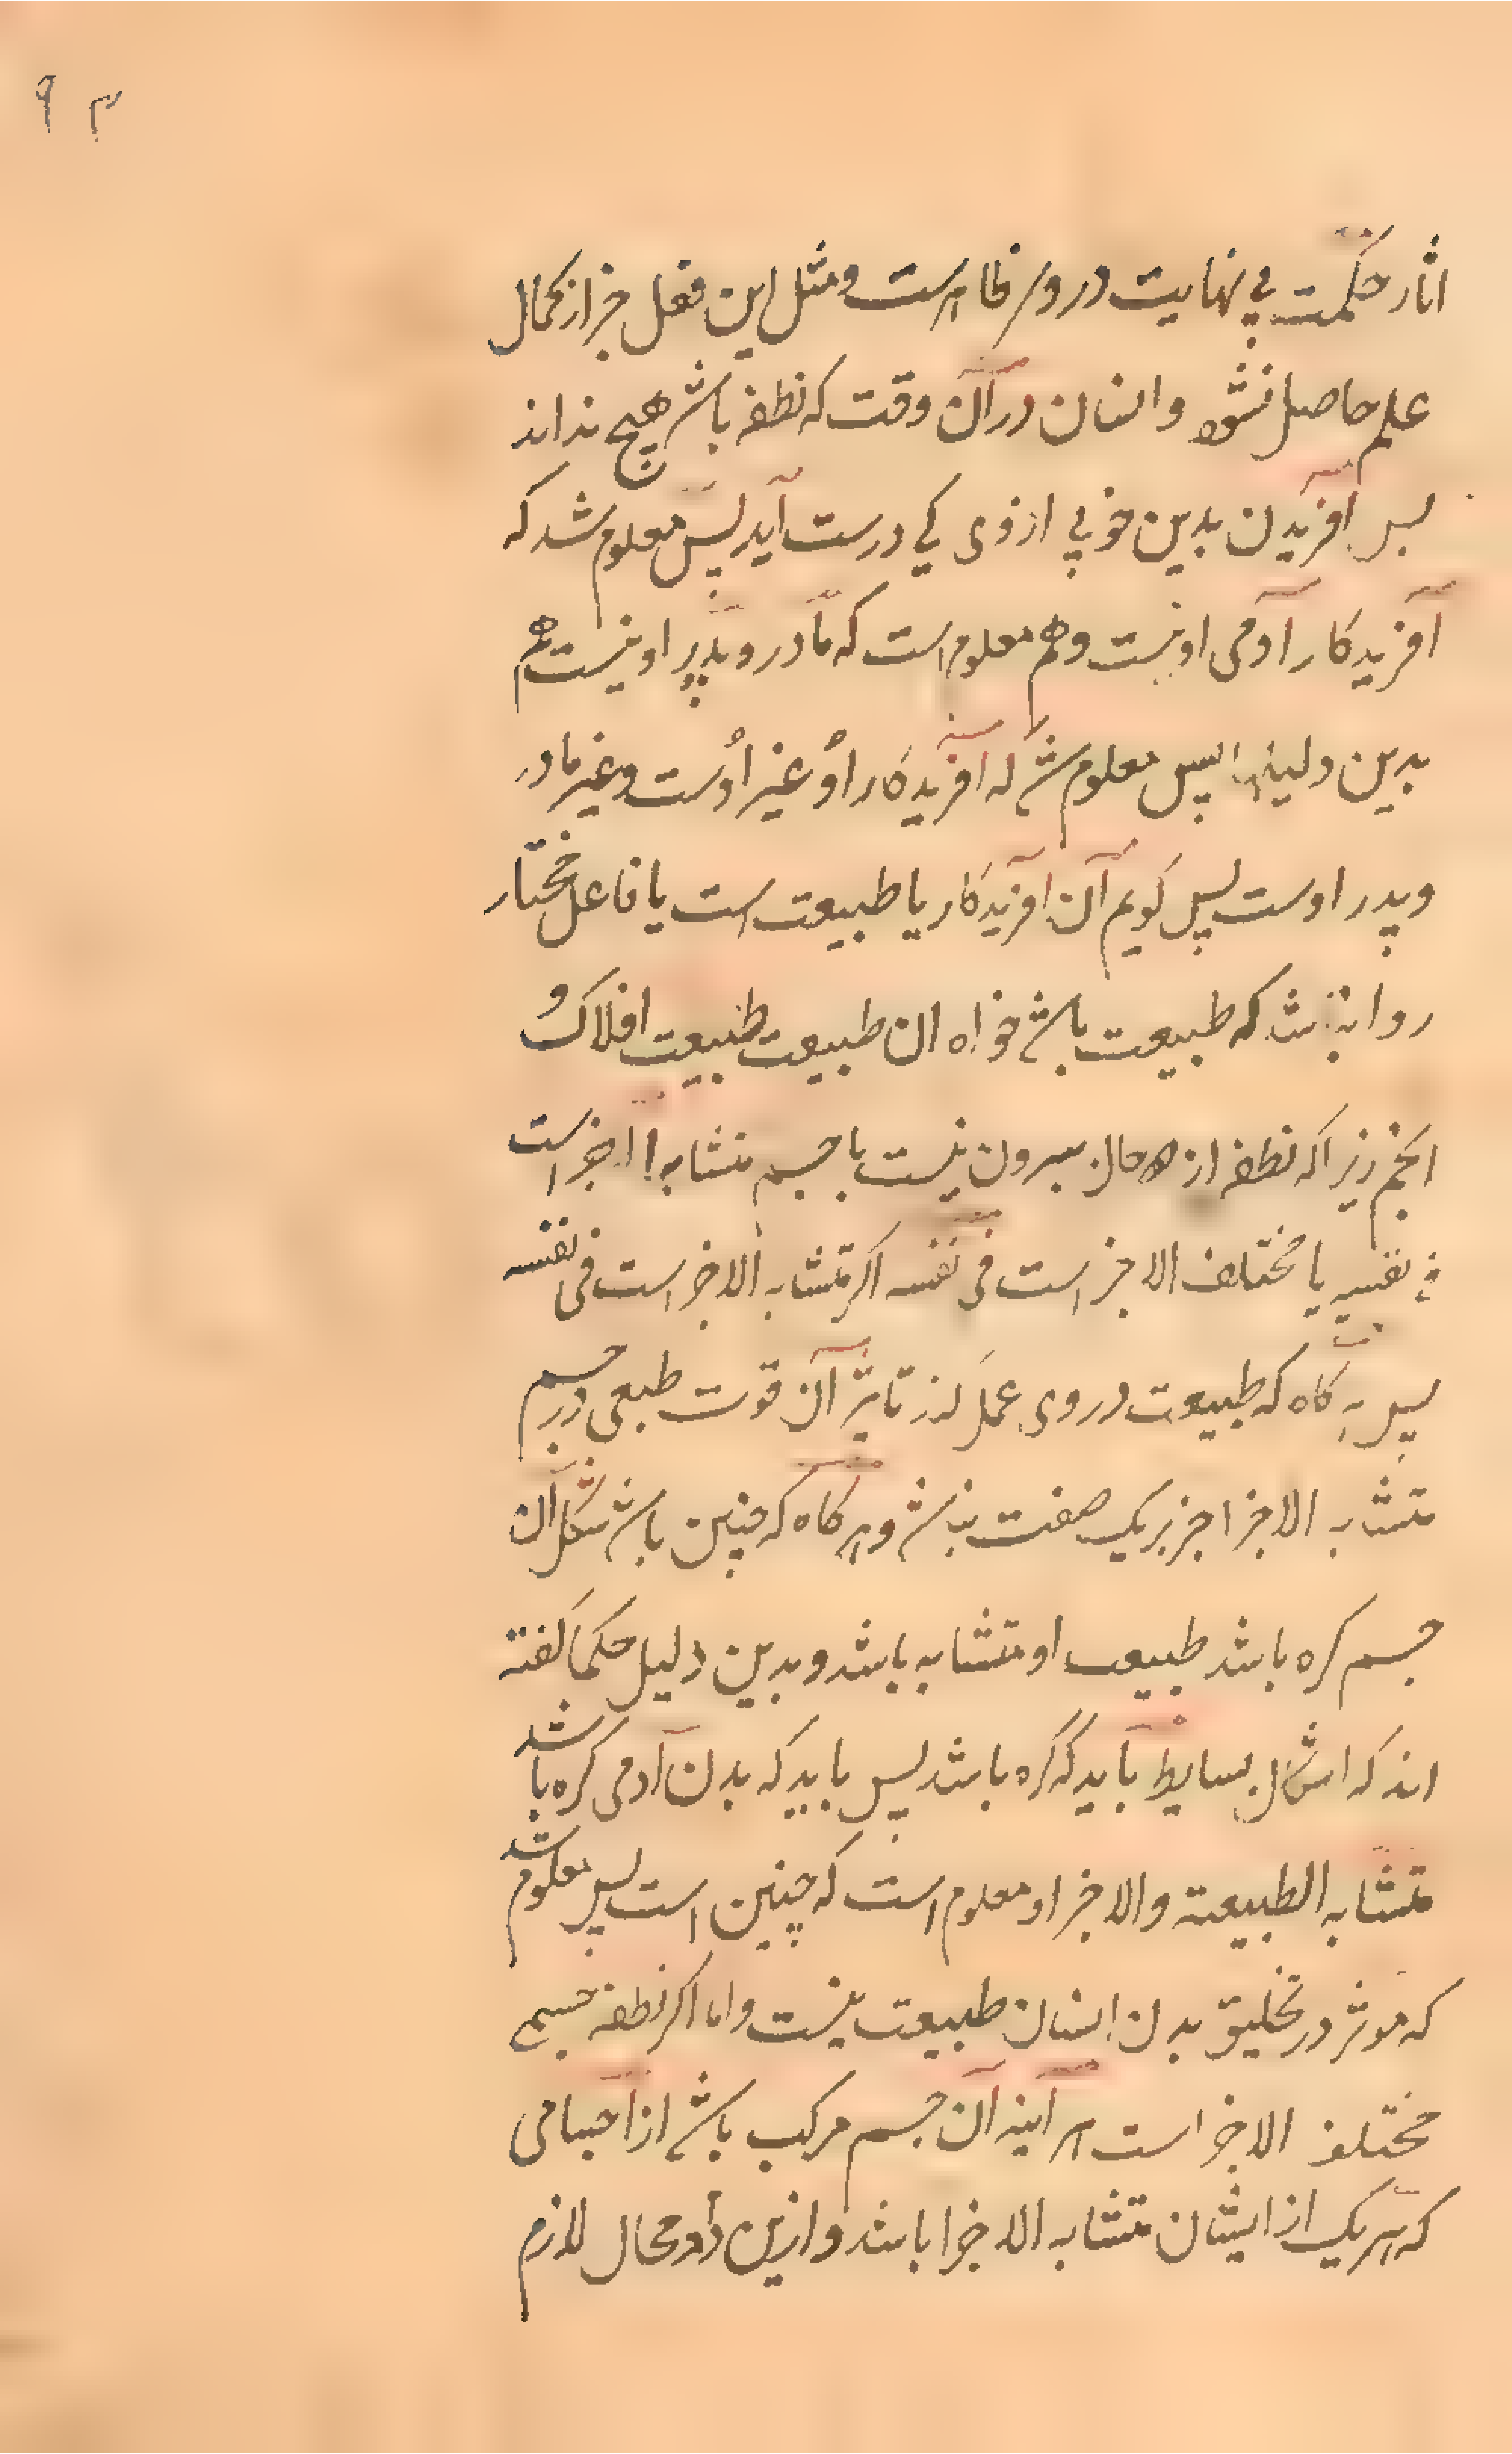 ۹ ۳
اثار حکمت بی نهایت درو ظاهرست و مثل این فعل جز از کمال
علم حاصل نشود و انسان در آن وقت که نطفه باشد هیچ نداند
پس آفریدن بدین خوبی ازوی کی درست آید پس معلوم شد که
آفریدکار آدمی او نیست و هم معلوم است که مادر و پدر او نیست هم
بدین دلیلها پس معلوم شد که آفریدکار او غیر اوست و غیر مادر
و پدر اوست پس کویم آن آفریدکار یا طبیعت است یا فاعل مختار
روا نباشد که طبیعت باشد خواه ان طبیعت طبیعت افلاک و
انجم زیرا که نطفه از حال بیرون نیست یا جسم متشابه الاجزاست
فی نفسه یا مختلف الاجزاست فی نفسه اکر متشابه الاجزاست فی نفسه
پس هرکاه که طبیعت در وی عمل کند تاثیر آن قوت طبعی در جسم
متشابه الاجزا جز بریک صفت نباشد و هرکاه که چنین باشد شکل آن
جسم کره باشد طبیعت او متشابه باشد و بدین دلیل حکما کفته
اند که اشکال بسایط باید که کره باشد پس باید که بدن آدمی کره باشد
متشابه الطبیعة والاجزا و معلوم است که چنین است پس معلوم شد
که موثر در تخلیق بدن انسان طبیعت نیست و اما اکر نطفه جسمی
مختلف الاجزاست هر آینه آن جسم مرکب باشد از اجسامی
که هر یک از ایشان متشابه الاجزا باشد و ازین دو محال لازم